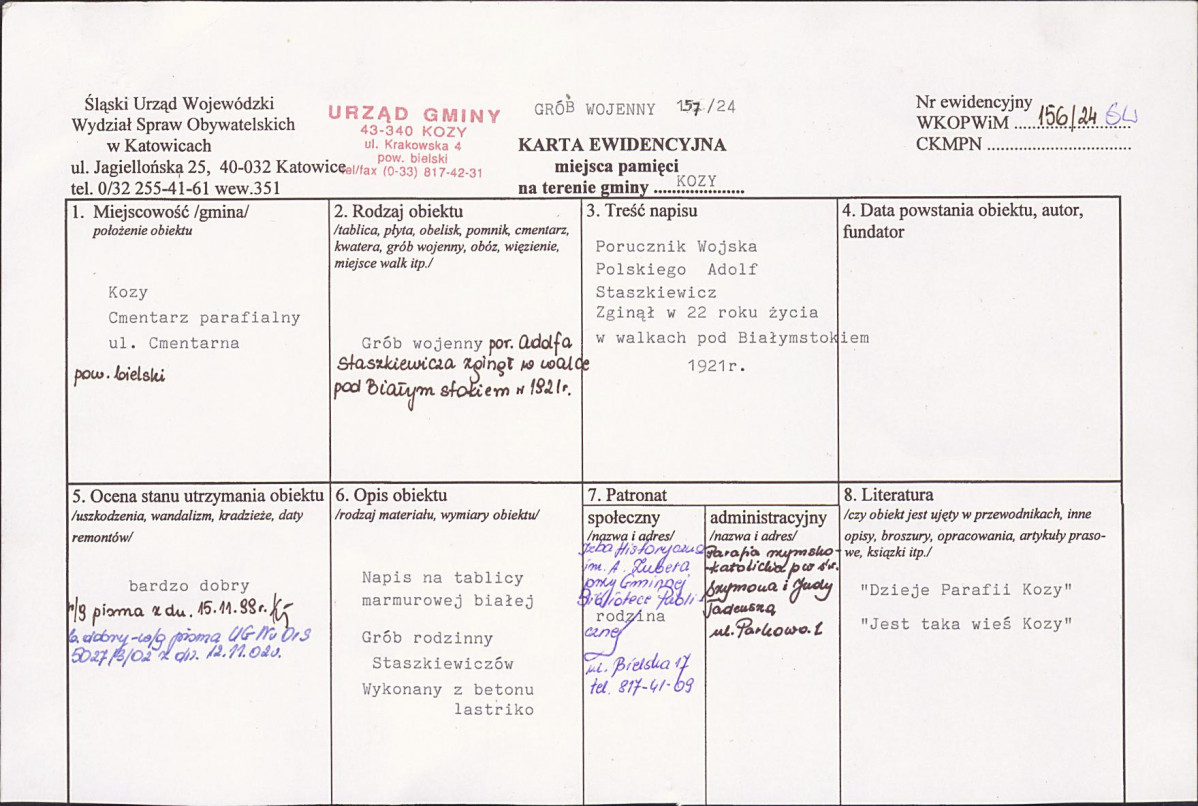 Śląski Urząd Wojewódzki
Wydział Spraw Obywatelskich
w Katowicach
ul. Jagiellońska 25, 40-032 Katowice
tel. 0/32 255-41-61 wew.351
URZĄD GMINY
43-340 KOZY
ul. Krakowska 4
pow. bielski
tel/fax (0-33) 817-42-31
GRÓB WOJENNY 157/24
KARTA EWIDENCYJNA
miejsca pamięci
na terenie gminy ....KOZY....
Nr ewidencyjny
WKOPWiM ....156/24....
CKMPN ....
1. Miejscowość /gmina/
położenie obiektu
Kozy
Cmentarz parafialny
ul. Cmentarna
pow. bielski
2. Rodzaj obiektu
/tablica, płyta, obelisk, pomnik, cmentarz,
kwatera, grób wojenny, obóz, więzienie,
miejsce walk itp./
Grób wojenny por. Adolfa
Staszkiewicza zginął w walce
pod Białym stokiem w 1921r.
3. Treść napisu
Porucznik Wojska
Polskiego Adolf
Staszkiewicz
Zginął w 22 roku życia
w walkach pod Białymstokiem
1921r.
4. Data powstania obiektu, autor,
fundator
5. Ocena stanu utrzymania obiektu
/uszkodzenia, wandalizm, kradzieże, daty
remontów/
bardzo dobry
w/g pisma z dn. 15.11.99r.
b. dobry - w/g pisma UG Nr OrS
5027/3/02 z dn. 12.11.02r.
6. Opis obiektu
/rodzaj materiału, wymiary obiektu/
Napis na tablicy
marmurowej białej
Grób rodzinny
Staszkiewiczów
Wykonany z betonu
lastriko
7. Patronat
społeczny
/nazwa i adres/
Izba Historyczna
im. A. Zubera
przy Gminnej
Bibliotece Publi-
rodzina
cznej
ul. Bielska 17
tel. 817-41-09
administracyjny
/nazwa i adres/
Parafia rzymsko-
-katolicka pw św.
Szymona i Judy
Tadeusza
ul. Parkowa 1
8. Literatura
/czy obiekt jest ujęty w przewodnikach, inne
opisy, broszury, opracowania, artykuły praso-
we, książki itp./
"Dzieje Parafii Kozy"
"Jest taka wieś Kozy"